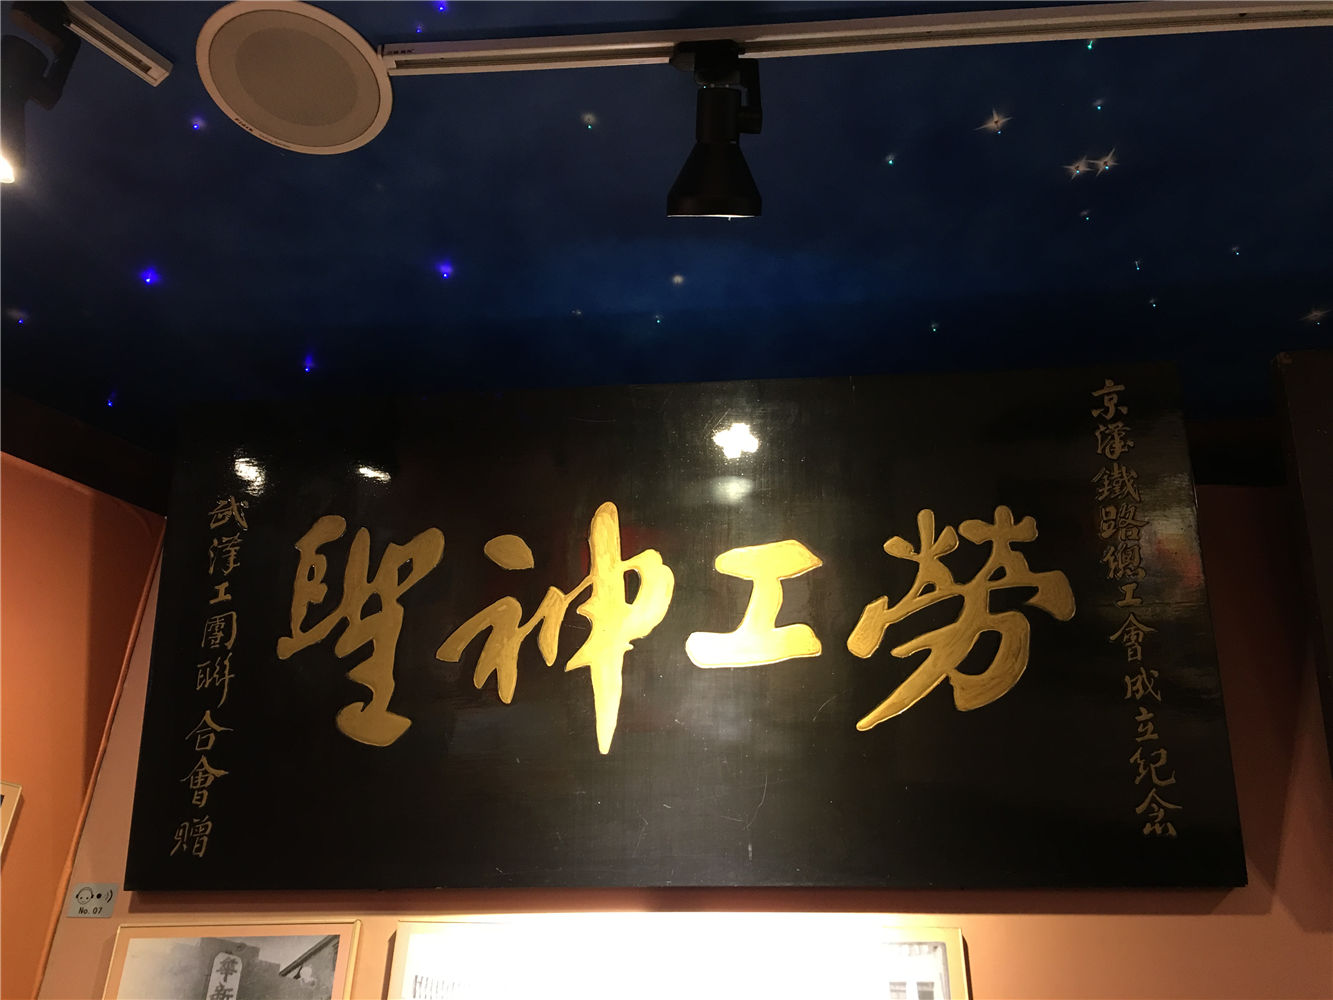 京漢鐵路總工會成立紀念
勞工神聖
武漢工團聯合會贈
No. 07
華新